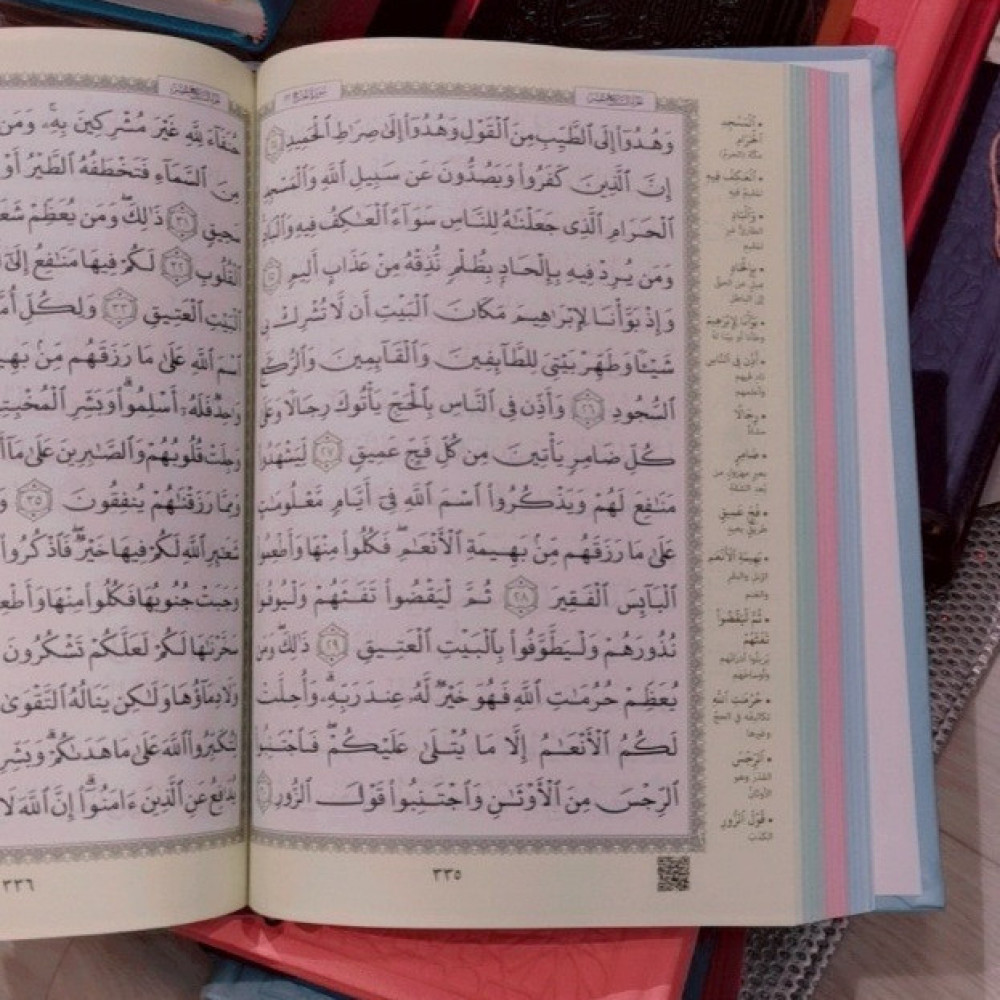 سورة الحج
وَهُدُوٓا۟ إِلَى ٱلطَّيِّبِ مِنَ ٱلْقَوْلِ وَهُدُوٓا۟ إِلَىٰ صِرَٰطِ ٱلْحَمِيدِ ٢٤
إِنَّ ٱلَّذِينَ كَفَرُوا۟ وَيَصُدُّونَ عَن سَبِيلِ ٱللَّهِ وَٱلْمَسْجِدِ
ٱلْحَرَامِ ٱلَّذِى جَعَلْنَٰهُ لِلنَّاسِ سَوَآءً ٱلْعَٰكِفُ فِيهِ وَٱلْبَادِ
وَمَن يُرِدْ فِيهِ بِإِلْحَادٍۭ بِظُلْمٍ نُّذِقْهُ مِنْ عَذَابٍ أَلِيمٍ ٢٥
وَإِذْ بَوَّأْنَا لِإِبْرَٰهِيمَ مَكَانَ ٱلْبَيْتِ أَن لَّا تُشْرِكْ بِى
شَيْـًٔا وَطَهِّرْ بَيْتِىَ لِلطَّآئِفِينَ وَٱلْقَآئِمِينَ وَٱلرُّكَّعِ
ٱلسُّجُودِ ٢٦ وَأَذِّن فِى ٱلنَّاسِ بِٱلْحَجِّ يَأْتُوكَ رِجَالًا وَعَلَىٰ
كُلِّ ضَامِرٍ يَأْتِينَ مِن كُلِّ فَجٍّ عَمِيقٍ ٢٧ لِّيَشْهَدُوا۟
مَنَٰفِعَ لَهُمْ وَيَذْكُرُوا۟ ٱسْمَ ٱللَّهِ فِىٓ أَيَّامٍ مَّعْلُومَٰتٍ
عَلَىٰ مَا رَزَقَهُم مِّنۢ بَهِيمَةِ ٱلْأَنْعَٰمِ ۖ فَكُلُوا۟ مِنْهَا وَأَطْعِمُوا۟
ٱلْبَآئِسَ ٱلْفَقِيرَ ٢٨ ثُمَّ لْيَقْضُوا۟ تَفَثَهُمْ وَلْيُوفُوا۟
نُذُورَهُمْ وَلْيَطَّوَّفُوا۟ بِٱلْبَيْتِ ٱلْعَتِيقِ ٢٩ ذَٰلِكَ ۖ وَمَن
يُعَظِّمْ حُرُمَٰتِ ٱللَّهِ فَهُوَ خَيْرٌ لَّهُۥ عِندَ رَبِّهِۦ ۗ وَأُحِلَّتْ
لَكُمُ ٱلْأَنْعَٰمُ إِلَّا مَا يُتْلَىٰ عَلَيْكُمْ ۖ فَٱجْتَنِبُوا۟
ٱلرِّجْسَ مِنَ ٱلْأَوْثَٰنِ وَٱجْتَنِبُوا۟ قَوْلَ ٱلزُّورِ ٣٠
٣٣٥
• ٱلْمَسْجِدِ
ٱلْحَرَامِ
مكة (الحرم)
• ٱلْعَٰكِفُ فِيهِ
المقيم فيه
• وَٱلْبَادِ
الطارئ غير
المقيم
• بِإِلْحَادٍ
ميل عن الحق
إلى الباطل
• بَوَّأْنَا لِإِبْرَٰهِيمَ
• أَذِّن فِى ٱلنَّاسِ
ناد فيهم
وأعلمهم
• رِجَالًا
مشاة
• ضَامِرٍ
بعير مهزول من
بعد الشقة
• فَجٍّ عَمِيقٍ
طريق بعيد
• بَهِيمَةِ ٱلْأَنْعَٰمِ
الإبل والبقر
والغنم
• ثُمَّ لْيَقْضُوا۟
تَفَثَهُمْ
يزيلوا أدرانهم
وأوساخهم
• حُرُمَٰتِ ٱللَّهِ
تكاليفه في الحج
وغيرها
• ٱلرِّجْسَ
القذر وهو
الأوثان
• قَوْلَ ٱلزُّورِ
الكذب
حُنَفَآءَ لِلَّهِ غَيْرَ مُشْرِكِينَ بِهِۦ ۚ وَمَن
مِنَ ٱلسَّمَآءِ فَتَخْطَفُهُ ٱلطَّيْرُ أَوْ
سَحِيقٍ ٣١ ذَٰلِكَ ۖ وَمَن يُعَظِّمْ شَعَ
ٱلْقُلُوبِ ٣٢ لَكُمْ فِيهَا مَنَٰفِعُ إِلَىٰٓ
ٱلْبَيْتِ ٱلْعَتِيقِ ٣٣ وَلِكُلِّ أُمَّ
ٱسْمَ ٱللَّهِ عَلَىٰ مَا رَزَقَهُم مِّنۢ بَهِي
وَٰحِدٌ فَلَهُۥٓ أَسْلِمُوا۟ ۗ وَبَشِّرِ ٱلْمُخْبِتِ
وَجِلَتْ قُلُوبُهُمْ وَٱلصَّٰبِرِينَ عَلَىٰ مَآ
وَمِمَّا رَزَقْنَٰهُمْ يُنفِقُونَ ٣٥ وَ
شَعَٰٓئِرِ ٱللَّهِ لَكُمْ فِيهَا خَيْرٌ ۖ فَٱذْكُرُوا۟
وَجَبَتْ جُنُوبُهَا فَكُلُوا۟ مِنْهَا وَأَطْعِ
سَخَّرْنَٰهَا لَكُمْ لَعَلَّكُمْ تَشْكُرُونَ
وَلَا دِمَآؤُهَا وَلَٰكِن يَنَالُهُ ٱلتَّقْوَىٰ
لِتُكَبِّرُوا۟ ٱللَّهَ عَلَىٰ مَا هَدَىٰكُمْ ۗ وَبَشِّرِ
يُدَٰفِعُ عَنِ ٱلَّذِينَ ءَامَنُوٓا۟ ۗ إِنَّ ٱللَّهَ لَا
٣٣٦